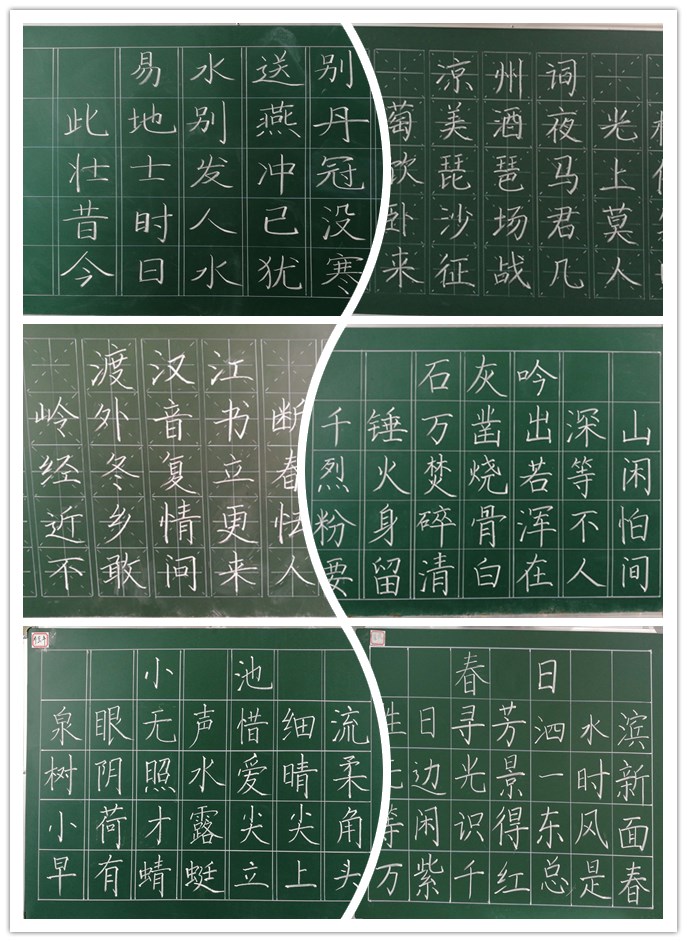 易水送别
此地别燕丹
壮士发冲冠
昔时人已没
今日水犹寒
凉州词
萄美酒夜光
饮琵琶马上
卧沙场君莫
来征战几人
渡汉江
岭外音书断
经冬复立春
近乡情更怯
不敢问来人
石灰吟
千锤万凿出深山
烈火焚烧若等闲
粉身碎骨浑不怕
要留清白在人间
小池
泉眼无声惜细流
树阴照水爱晴柔
小荷才露尖尖角
早有蜻蜓立上头
春日
日寻芳泗水滨
边光景一时新
等闲识得东风面
万紫千红总是春